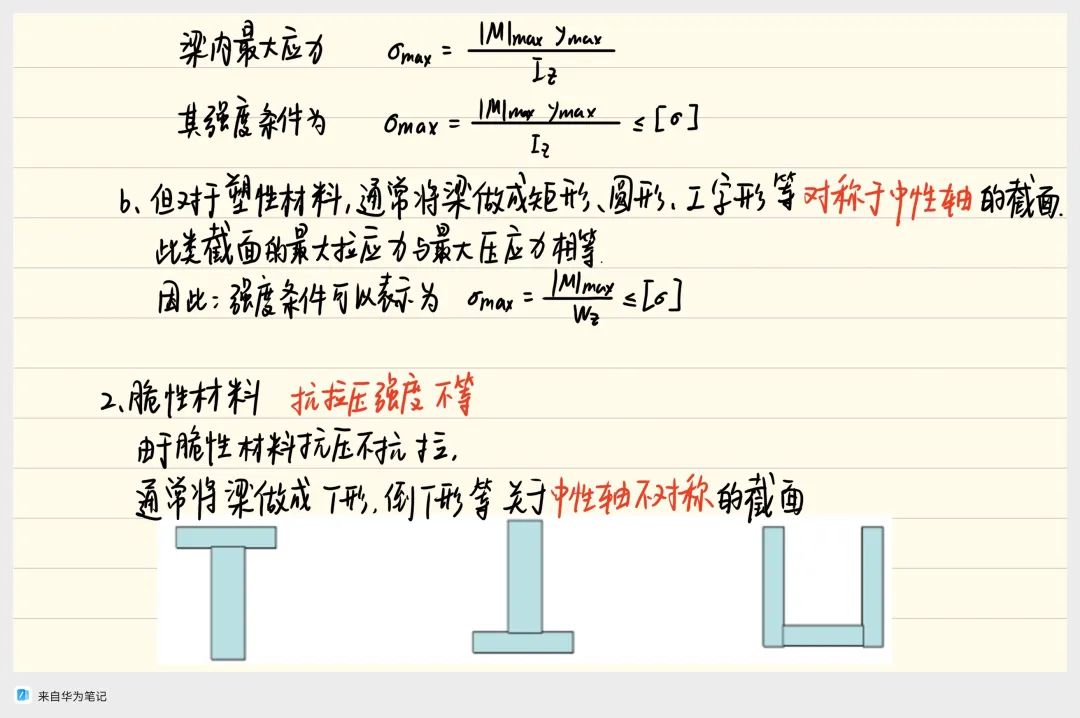 梁内最大应力 σmax = |M|max ymax / Iz
其强度条件为 σmax = |M|max ymax / Iz ≤ [σ]
b、但对于塑性材料,通常将梁做成矩形、圆形、工字形等对称于中性轴的截面.
此类截面的最大拉应力与最大压应力相等.
因此:强度条件可以表示为 σmax = |M|max / Wz ≤ [σ]
2、脆性材料 抗拉压强度不等
由于脆性材料抗压不抗拉,
通常将梁做成T形,倒T形等关于中性轴不对称的截面
来自华为笔记